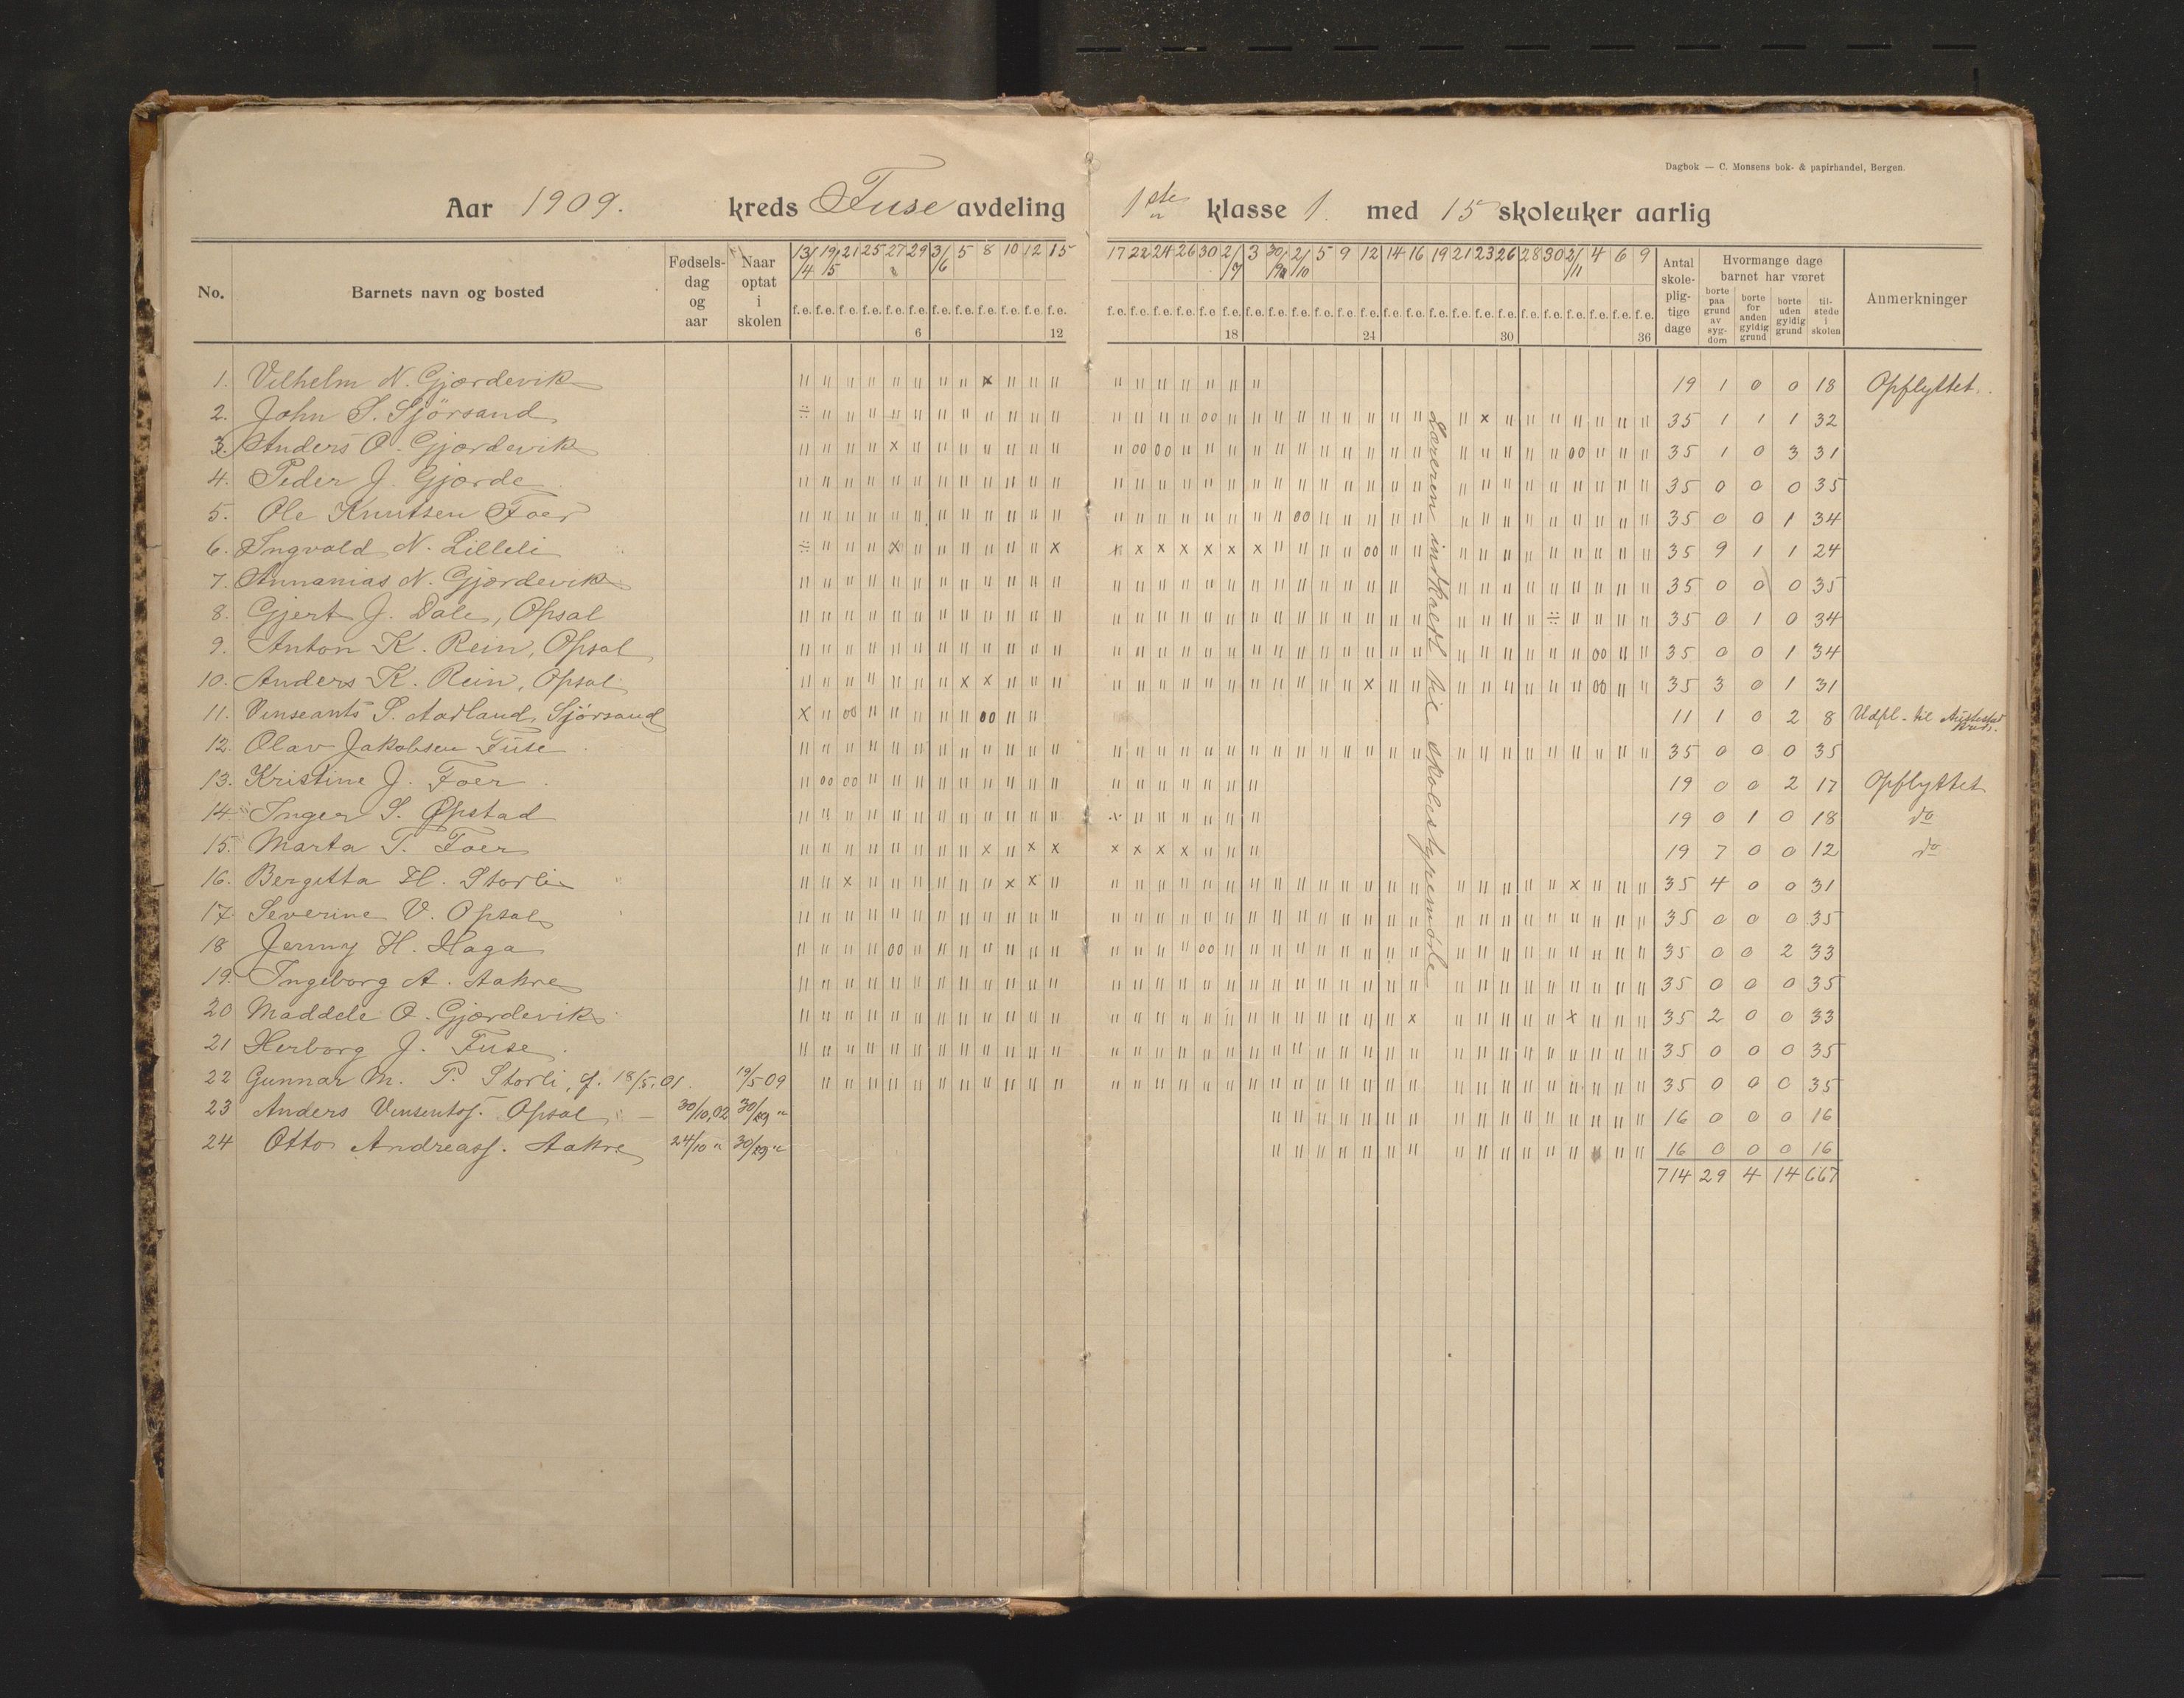 Dagbok — C. Monsens bok- & papirhandel, Bergen.
Aar 1909. kreds Fuse avdeling 1ste klasse 1. med 15 skoleuker aarlig
No. Barnets navn og bosted Fødselsdag og aar Naar optat i skolen 13/4 19/5 21 25 27 29 3/6 5 8 10 12 15 17 22 24 26 30 2/7 3 30/9 2/10 5 9 12 14 16 19 21 23 26 28 30 2/11 4 6 9 Antal skolepligtige dage Hvormange dage barnet har været Anmerkninger
borte paa grund av sygdom borte for anden gyldig grund borte uden gyldig grund tilstede i skolen
f.e. f.e. f.e. f.e. f.e. f.e. f.e. f.e. f.e. f.e. f.e. f.e. f.e. f.e. f.e. f.e. f.e. f.e. f.e. f.e. f.e. f.e. f.e. f.e. f.e. f.e. f.e. f.e. f.e. f.e. f.e. f.e. f.e. f.e. f.e. f.e.
6 12 18 24 30 36
1. Vilhelm N. Gjørdevik 19 1 0 0 18 Opflyttet.
2. John S. Sjörsand 35 1 1 1 32
3. Anders O. Gjørdevik 35 1 0 3 31
4. Peder J. Gjørde 35 0 0 0 35
5. Ole Knutsen Foer 35 0 0 1 34
6. Ingvald N. Lilleli 35 9 1 1 24
7. Annanias N. Gjørdevik 35 0 0 0 35
8. Gjert J. Dale, Opsal 35 0 1 0 34
9. Anton K. Rein, Opsal 35 0 0 1 34
10. Anders K. Rein, Opsal 35 3 0 1 31
11. Vinseants S. Aadland, Sjörsand 11 1 0 2 8 Udfl. til
12. Olav Jakobsen Fuse 35 0 0 0 35
13. Kristine J. Foer 19 0 0 2 17 Opflyttet
14. Inger S. Opstad 19 0 1 0 18 do
15. Marta T. Foer 19 7 0 0 12 do
16. Bergitta H. Storli 35 4 0 0 31
17. Severine V. Opsal 35 0 0 0 35
18 Jenny H. Haga 35 0 0 2 33
19. Ingeborg A. Aakre 35 0 0 0 35
20 Maddele O. Gjørdevik 35 2 0 0 33
21 Herborg J. Fuse 35 0 0 0 35
22 Gunnar M. P. Storli, f. 18/5.01. 19/5 09 35 0 0 0 35
23 Anders Vinsentss. Opsal 30/10,02 30/9 " 16 0 0 0 16
24 Otto Andreass. Aakre 24/10 " 30/9 " 16 0 0 0 16
714 29 4 14 667
Læreren indkaldt til skolestyremöde